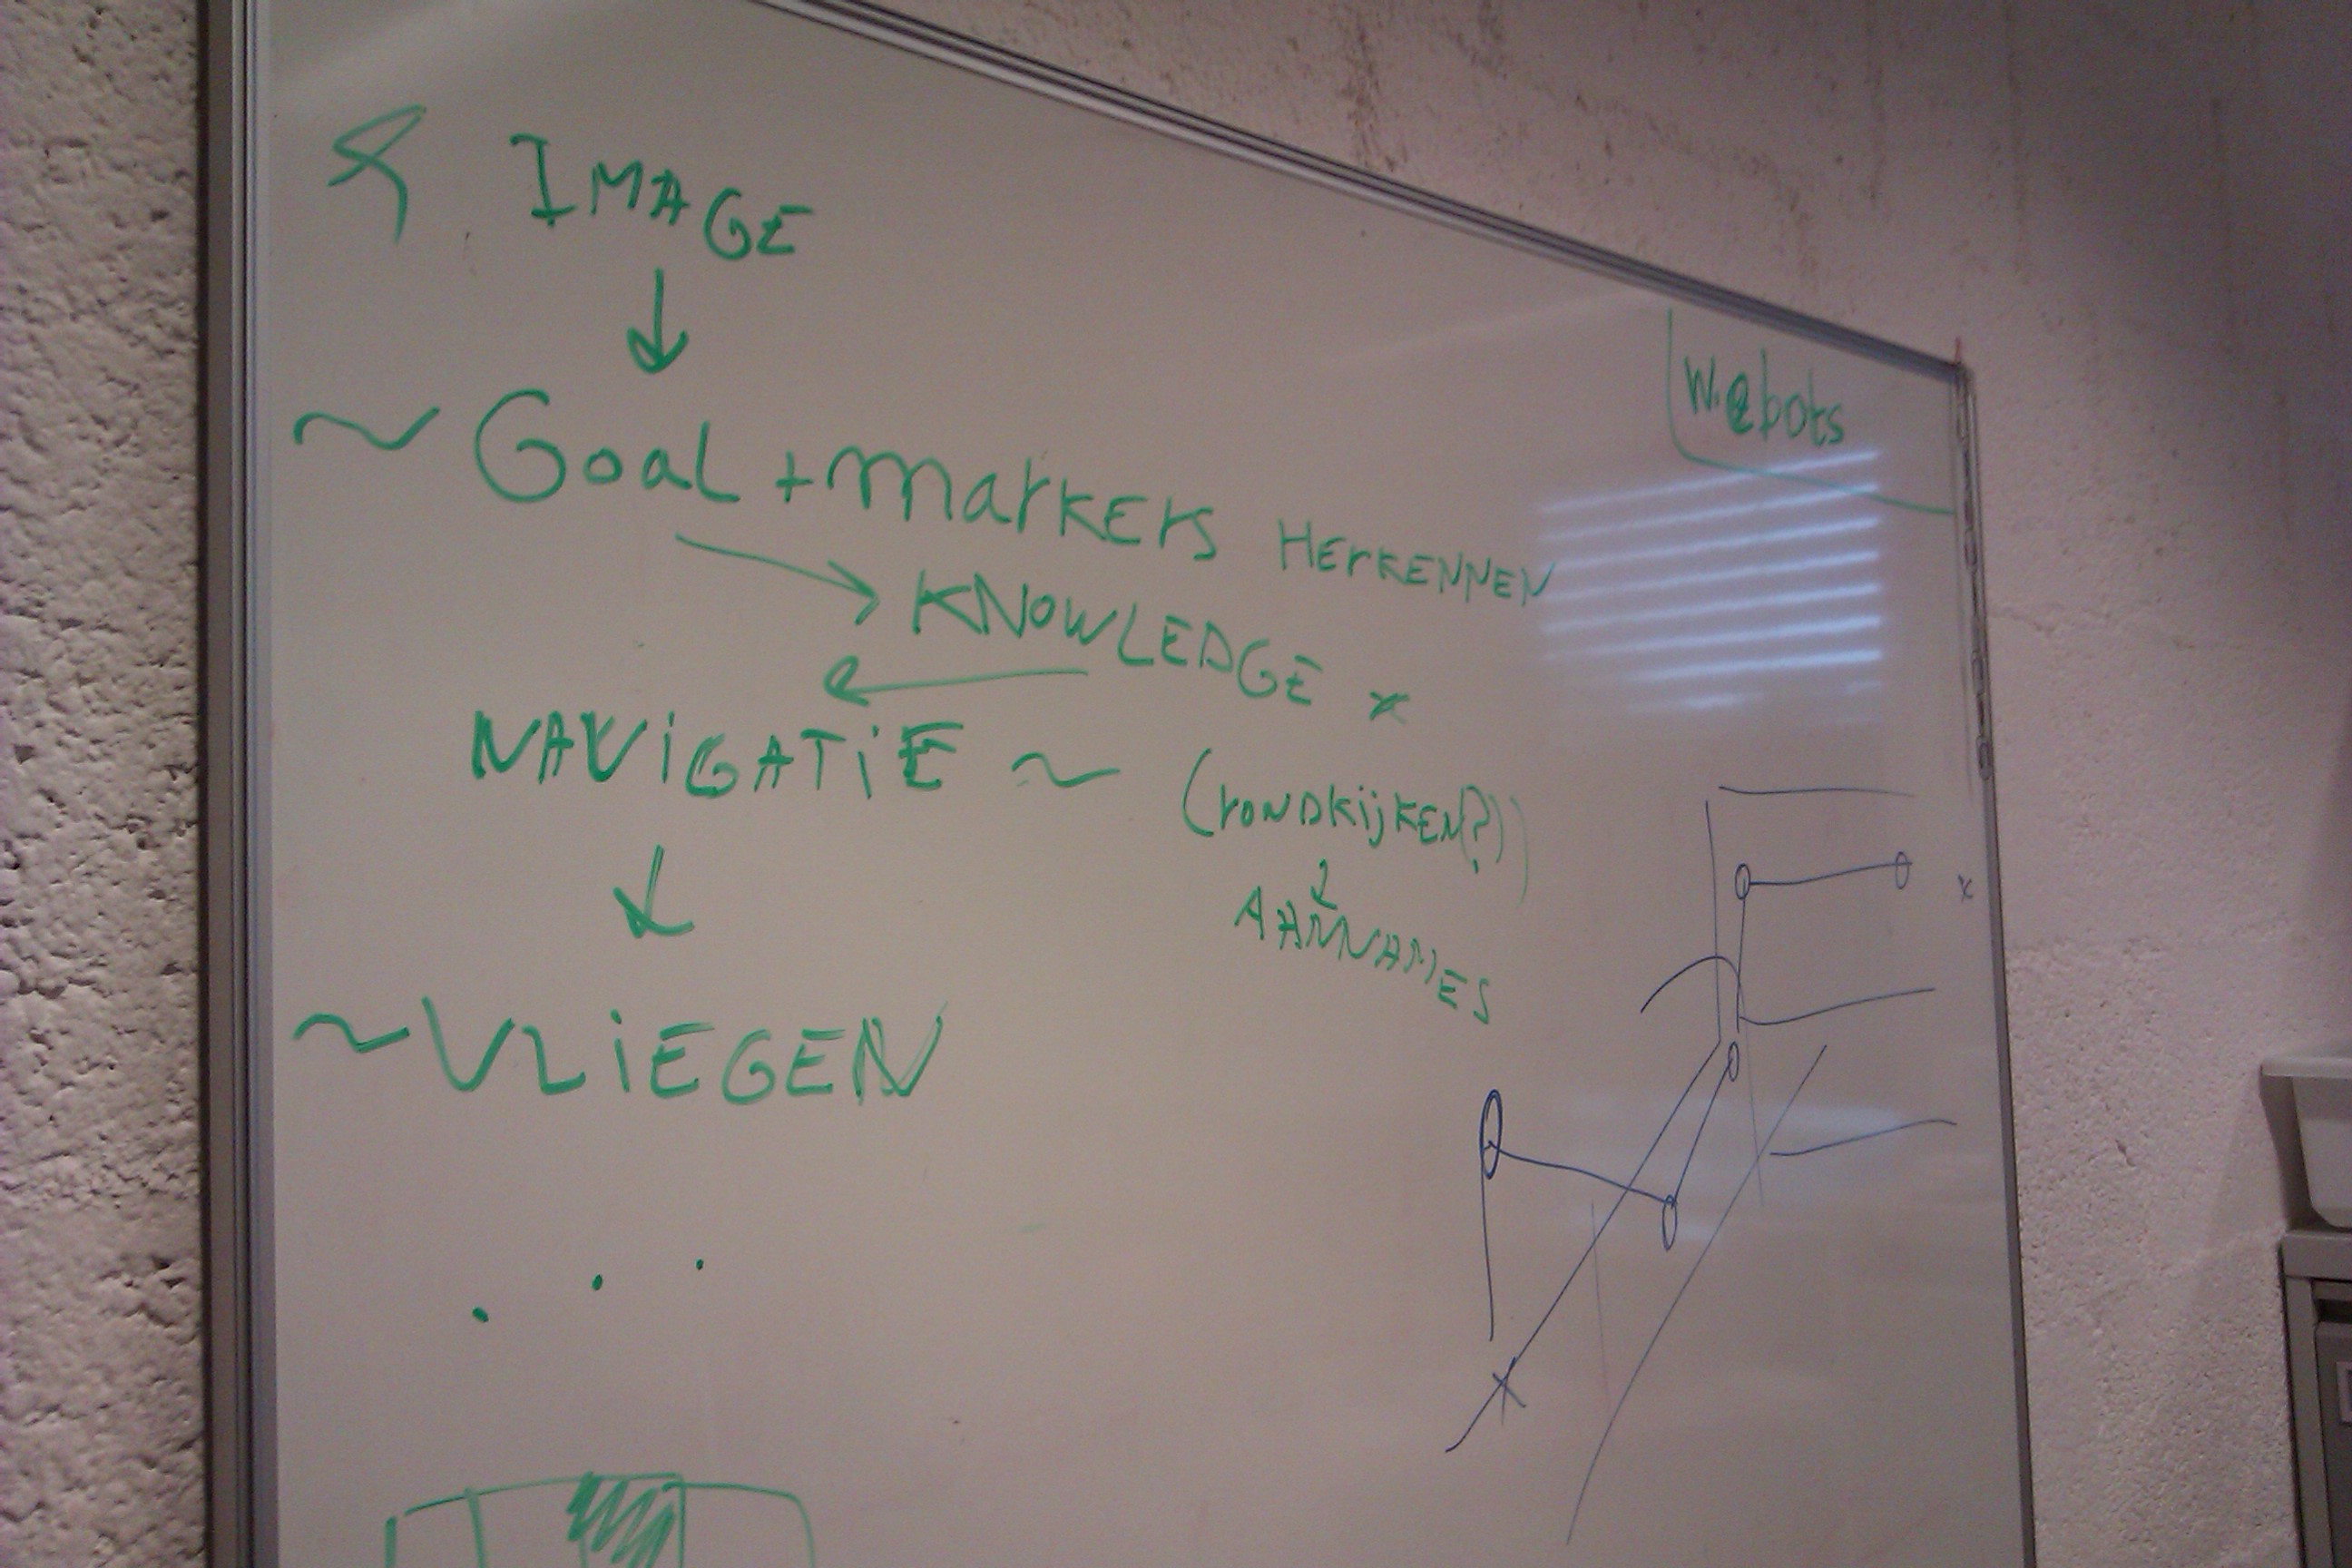 IMAGE
Webots
~ Goal + markers HERKENNEN
KNOWLEDGE x
NAVIGATIE ~ (rondkijken(?))
AANNAMES
~ VLIEGEN
. . .
x
x